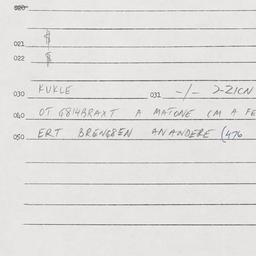 020
021 $
022 $
030 KUKLE 031 -/- 2-ZICN
040 OT G814BRAXT A MATONE CM A FE
050 ERT BRENGSEN AN ANDERE (476